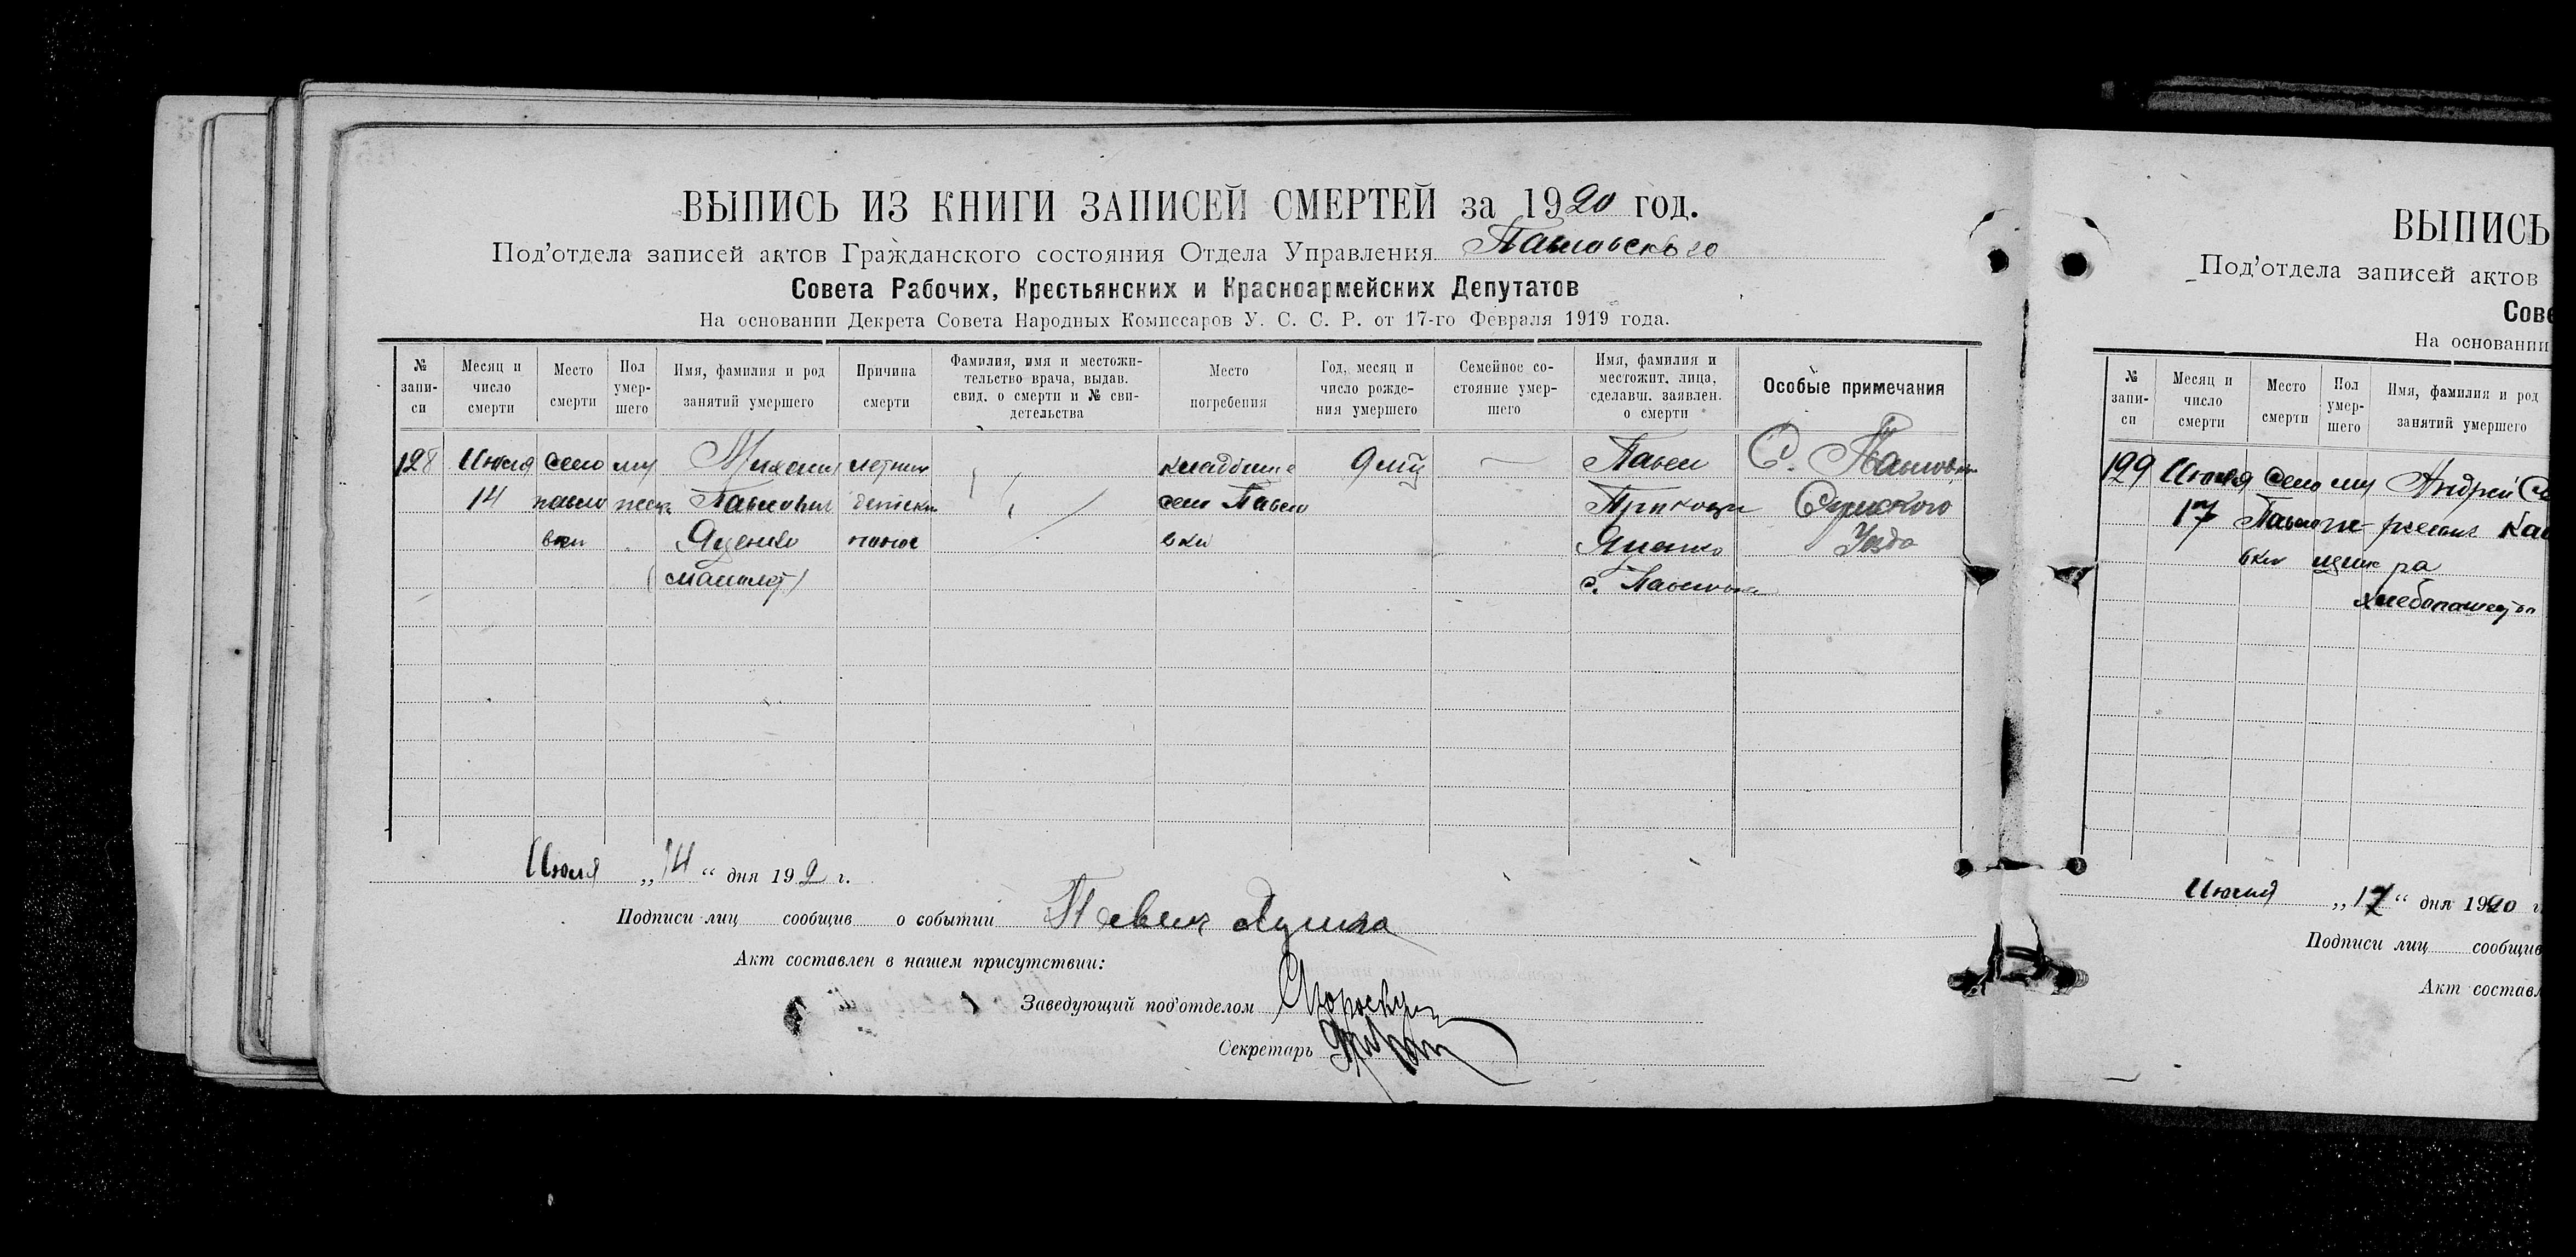 ВЫПИСЬ ИЗ КНИГИ ЗАПИСЕЙ СМЕРТЕЙ за 1920 год.
Под'отдела записей актов Гражданского состояния Отдела Управления Павловского
Совета Рабочих, Крестьянских и Красноармейских Депутатов
На основании Декрета Совета Народных Комиссаров У. С. С. Р. от 17-го Февраля 1919 года.
№ запи- си
Месяц и число смерти
Место смерти
Пол умер- шего
Имя, фамилия и род занятий умершего
Причина смерти
Фамилия, имя и местожи- тельство врача, выдав. свид. о смерти и № сви- детельства
Место погребения
Год, месяц и число рожде- ния умершего
Семейное со- стояние умер- шего
Имя, фамилия и местожит. лица, сделавш. заявлен. о смерти
Особые примечания
128 Июля село му Михаил летний кладбище 9 Павел С. Павловки
14 павло жеск Павлович детский село Павло Сумского
вки Яценко понос вки Яценко Уезда
(малолет) с. Павловки
Июля „14“ дня 192 г.
Подписи лиц сообщив о событии Павел
Акт составлен в нашем присутствии:
Заведующий под'отделом
Секретарь
ВЫПИСЬ
Под'отдела записей актов
Сове
На основании
№ запи- си
Месяц и число смерти
Место смерти
Пол умер- шего
Имя, фамилия и род занятий умершего
129 Июля село му Андрей
17 Павло
вки
Июля „17“ дня 1920 г.
Подписи лиц сообщив
Акт составл